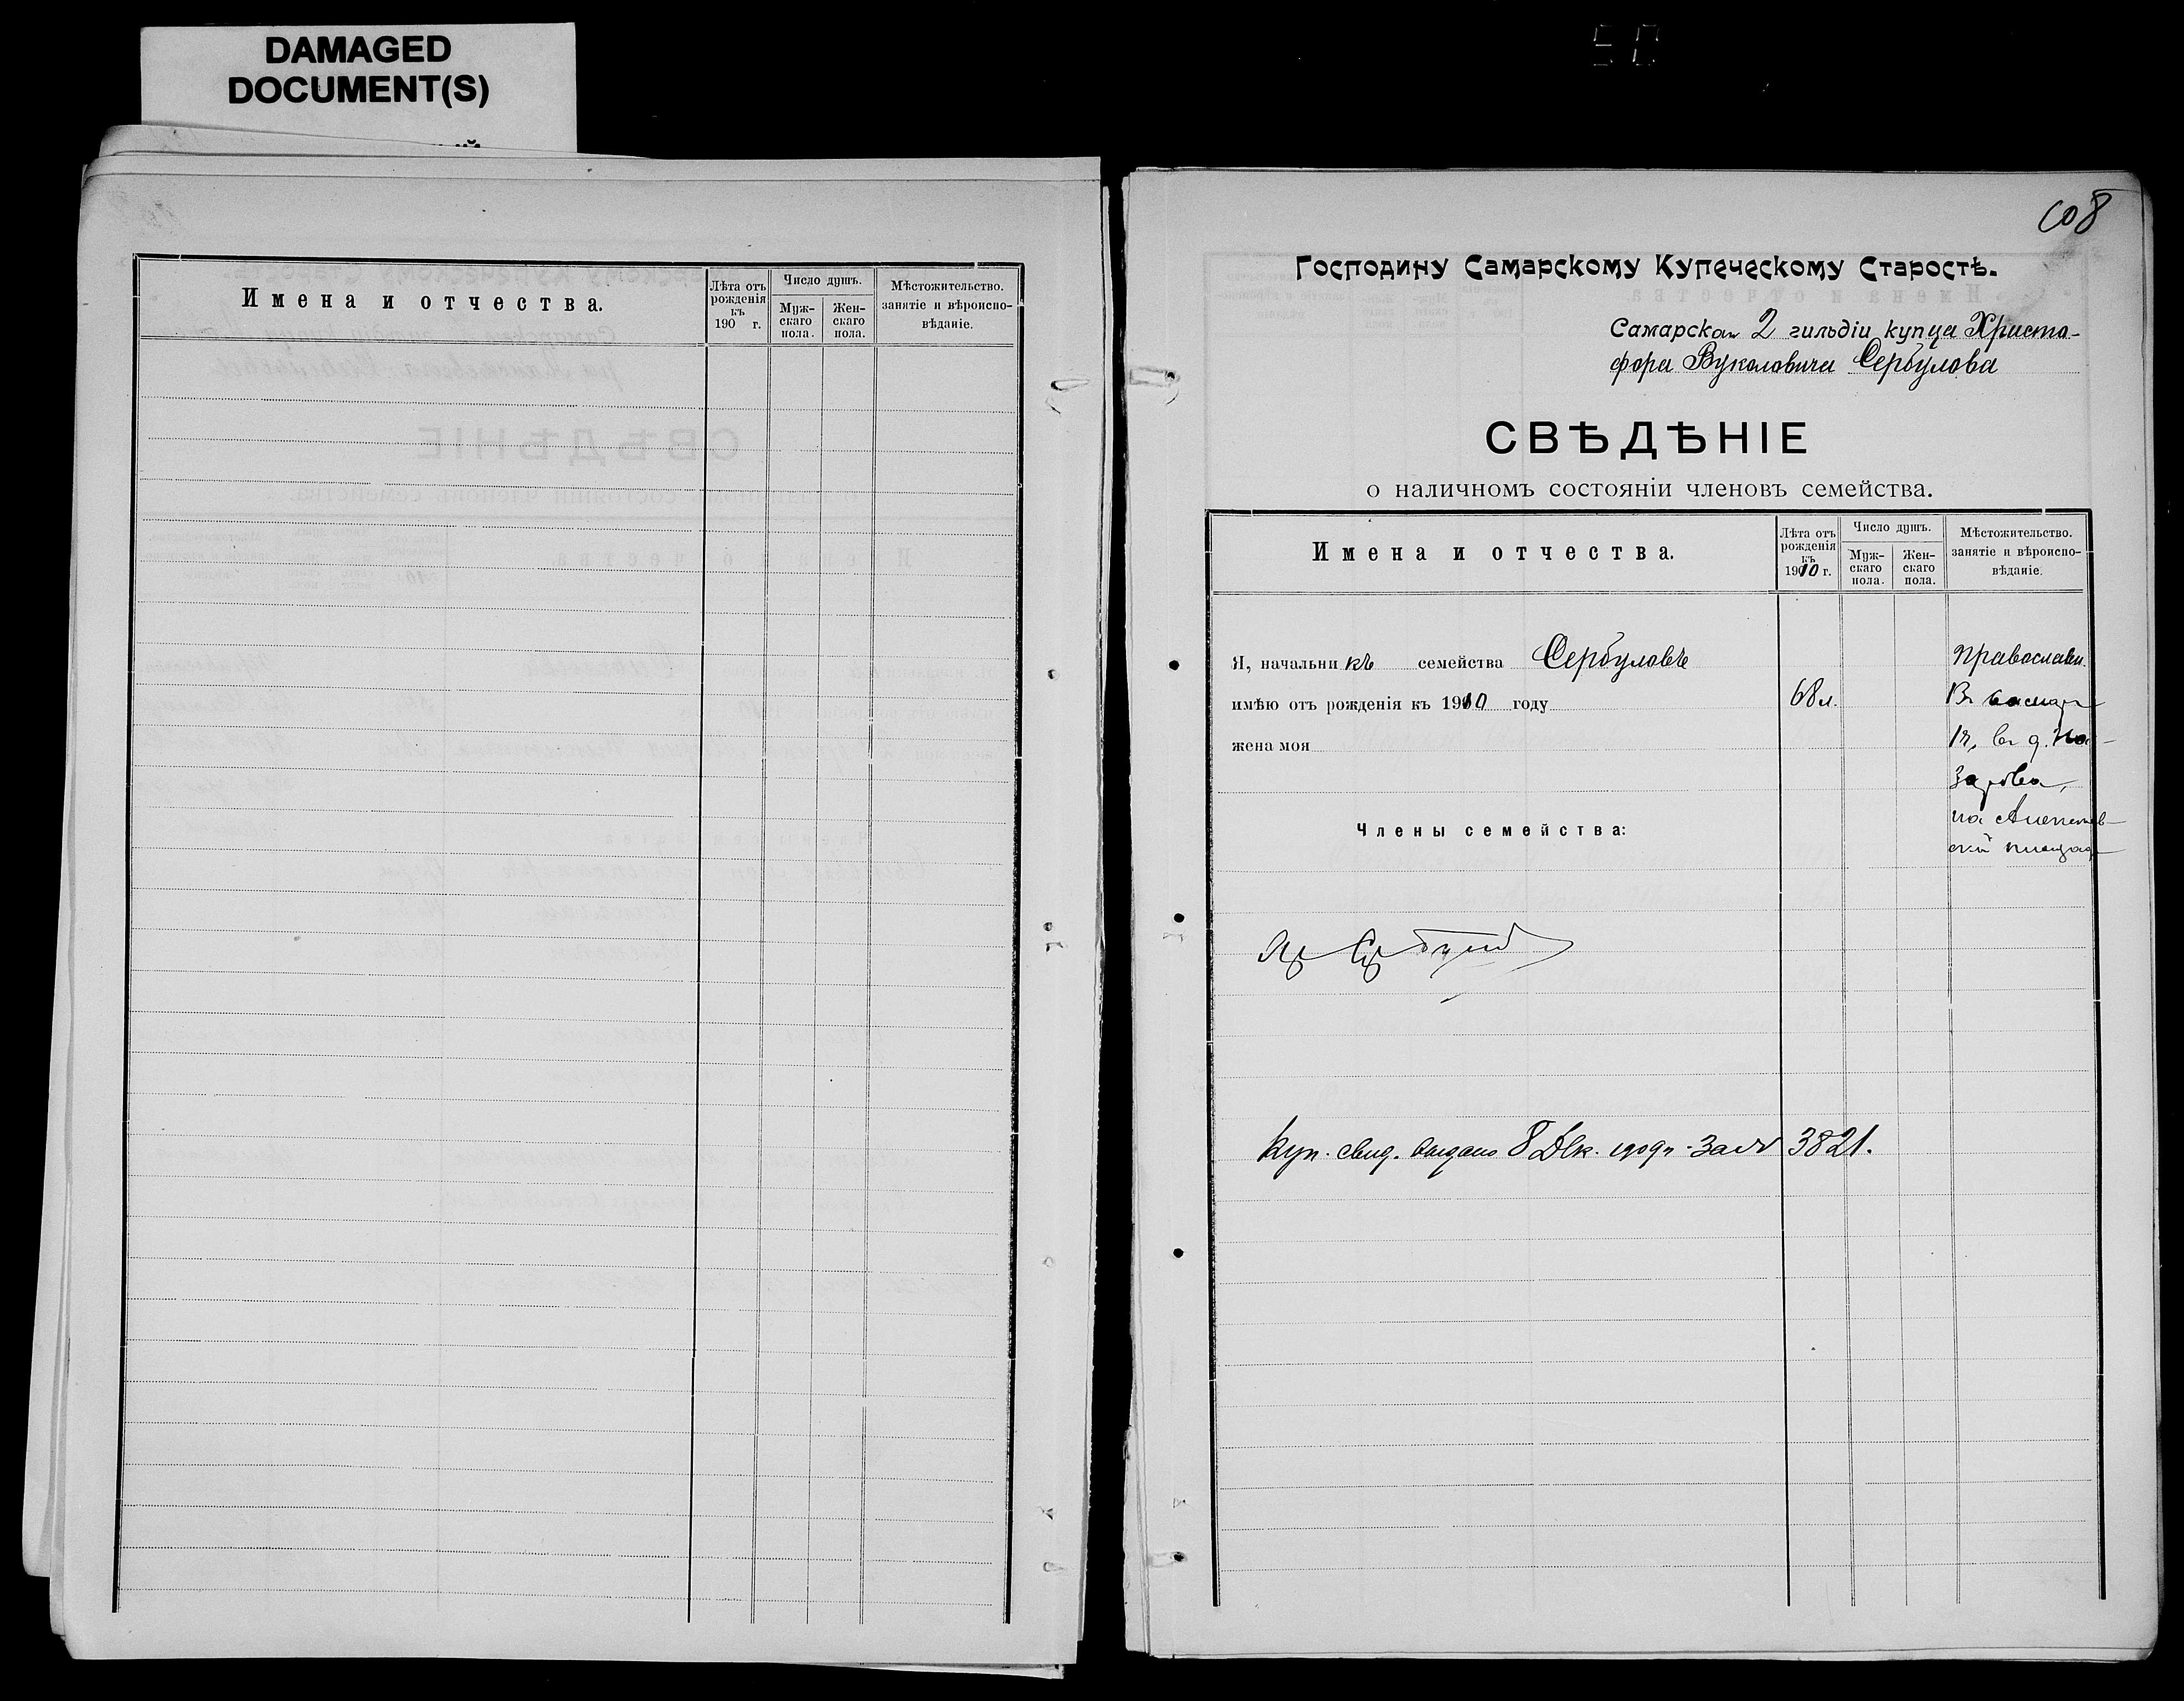 DAMAGED
DOCUMENT(S)
Имена и отчества.
Лѣта отъ рожденія къ 190 г.
Число душъ.
Мужскаго пола.
Женскаго пола.
Мѣстожительство. занятіе и вѣроиспо-
вѣданіе.
108
Господину Самарскому Купеческому Старостѣ.
Самарскаго 2 гильдіи купца Христо-
фора Вуколовича Сербулова
СВѢДѢНІЕ
о наличномъ состояніи членовъ семейства.
Имена и отчества.
Лѣта отъ рожденія къ 1910 г.
Число душъ.
Муж-
скаго
пола.
Жен-
скаго
пола.
Мѣстожительство.
занятіе и вѣроиспо-
вѣданіе.
Я, начальникъ семейства Сербуловъ
православн.
имѣю отъ рожденія къ 1910 году 68 л.
жена моя
Члены семейства:
Куп. свид. выдано 8 Дек. 1909 г. за № 3821.